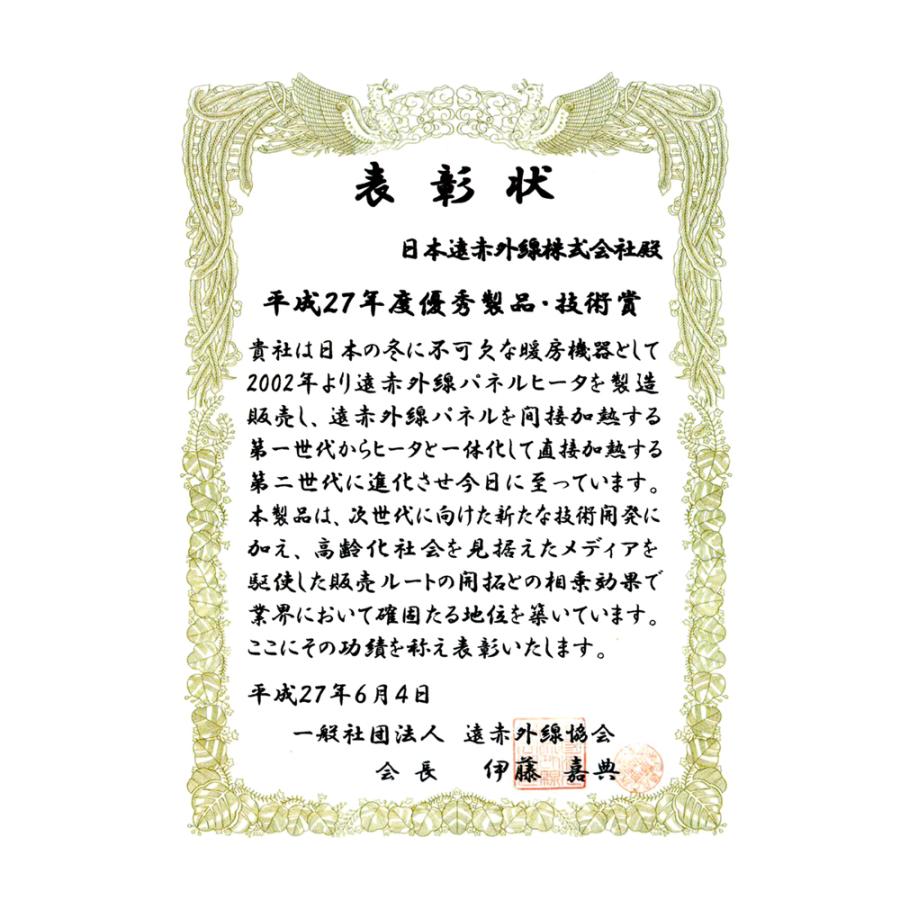 表彰状
日本遠赤外線株式会社殿
平成27年度優秀製品・技術賞
貴社は日本の冬に不可欠な暖房機器として
2002年より遠赤外線パネルヒータを製造
販売し、遠赤外線パネルを間接加熱する
第一世代からヒータと一体化して直接加熱する
第二世代に進化させ今日に至っています。
本製品は、次世代に向けた新たな技術開発に
加え、高齢化社会を見据えたメディアを
駆使した販売ルートの開拓との相乗効果で
業界において確固たる地位を築いています。
ここにその功績を称え表彰いたします。
平成27年6月4日
一般社団法人 遠赤外線協会
会長 伊藤 嘉典